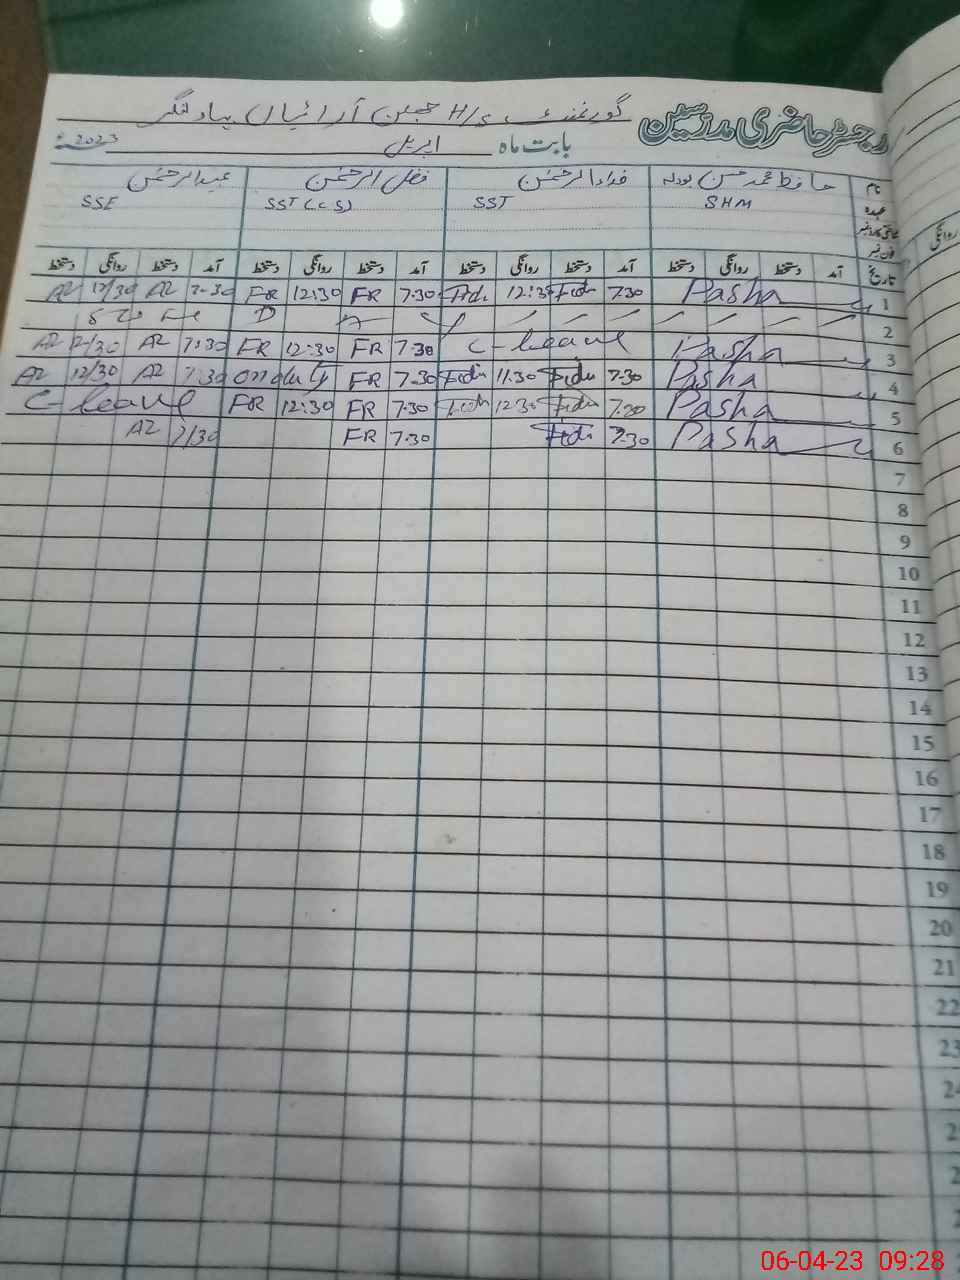 رجسٹر حاضری مدرسین گورنمنٹ H/S آرائیاں بہاولنگر
بابت ماہ اپریل 2023ء
نام حافظ محمد حسن فداء الرحمٰن فضل الرحمٰن عبدالرحمٰن
عہدہ SHM SST SST (CS) SSE
فون نمبر
تاریخ آمد دستخط روانگی دستخط آمد دستخط روانگی دستخط آمد دستخط روانگی دستخط آمد دستخط روانگی دستخط
1 Pasha 7.30 12:30 7.30 FR 12:30 FR 7.30 AZ 12/30 AZ
2 S U N D A Y
3 Pasha C-leave 7.30 FR 12:30 FR 7:30 AZ 12/30 AZ
4 Pasha 7.30 11.30 7.30 FR on duty 7:30 AZ 12/30 AZ
5 Pasha 7.30 12:30 7.30 FR 12:30 FR C-leave
6 Pasha 7.30 7.30 FR 7/30 AZ
7
8
9
10
11
12
13
14
15
16
17
18
19
20
21
22
23
روانگی
06-04-23 09:28